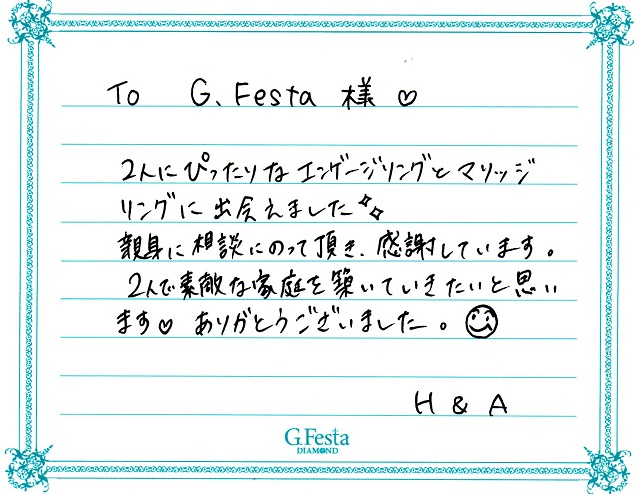 To G.Festa 様♡
2人にぴったりなエンゲージリングとマリッジ
リングに出会えました✨
親身に相談にのって頂き、感謝しています。
2人で素敵な家庭を築いていきたいと思い
ます♡ ありがとうございました。☺
H & A
G.Festa
DIAMOND